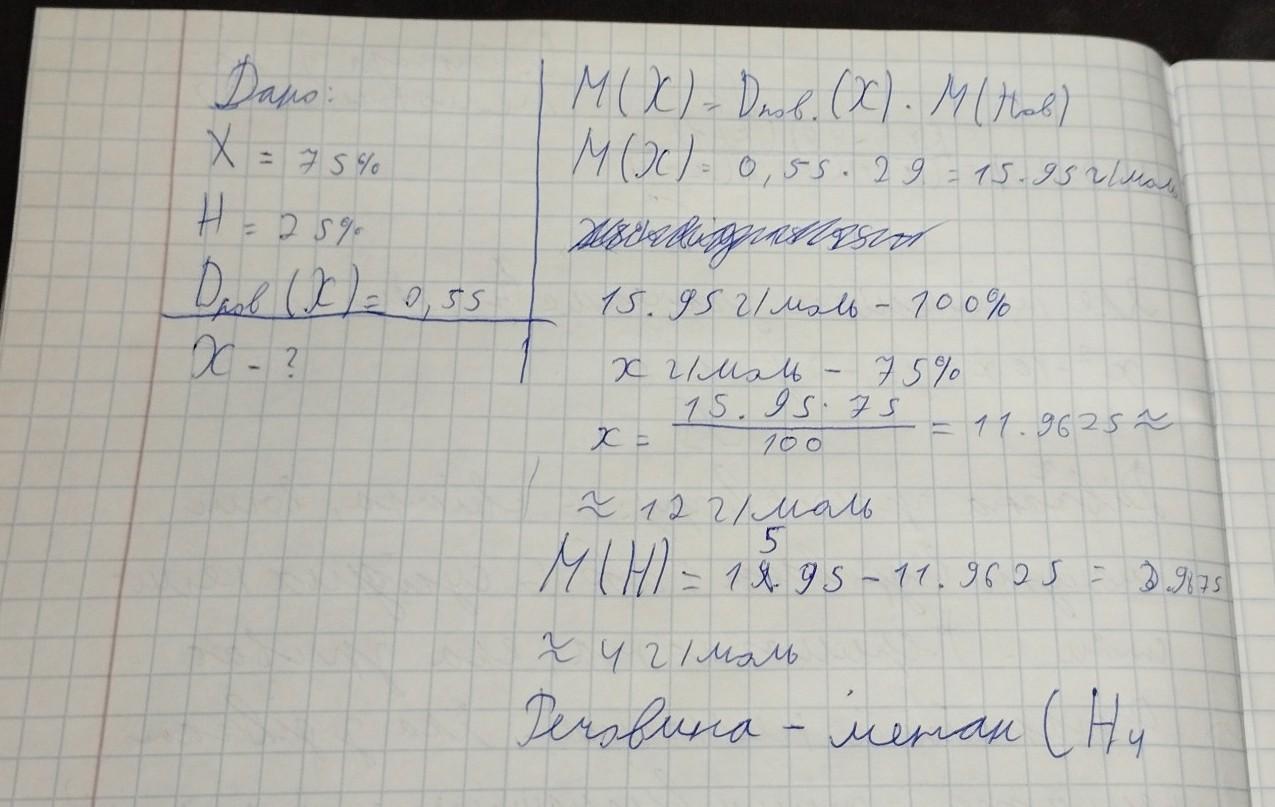 Дано:
X = 75%
H = 25%
Dпов (X) = 0,55
X - ?
M(X) = Dпов. (X) · M(пов)
M(X) = 0,55 · 29 = 15.95 г/моль
15.95 г/моль - 100%
x г/моль - 75%
x = 15.95 · 75 / 100 = 11.9625 ≈
≈ 12 г/моль
M(H) = 15.95 - 11.9625 = 3.9675
≈ 4 г/моль
Речовина - метан CH4